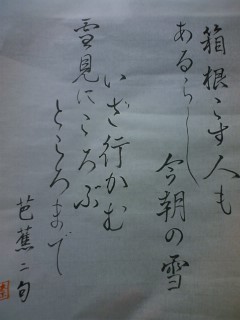 箱根こす人も
あるらし今朝の雪
いざ行かむ
雪見にころぶ
ところまで
芭蕉二句